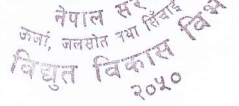 नेपाल सर
ऊर्जा, जलस्रोत तथा सिँचाई
विद्युत विकास विभ
२०५०